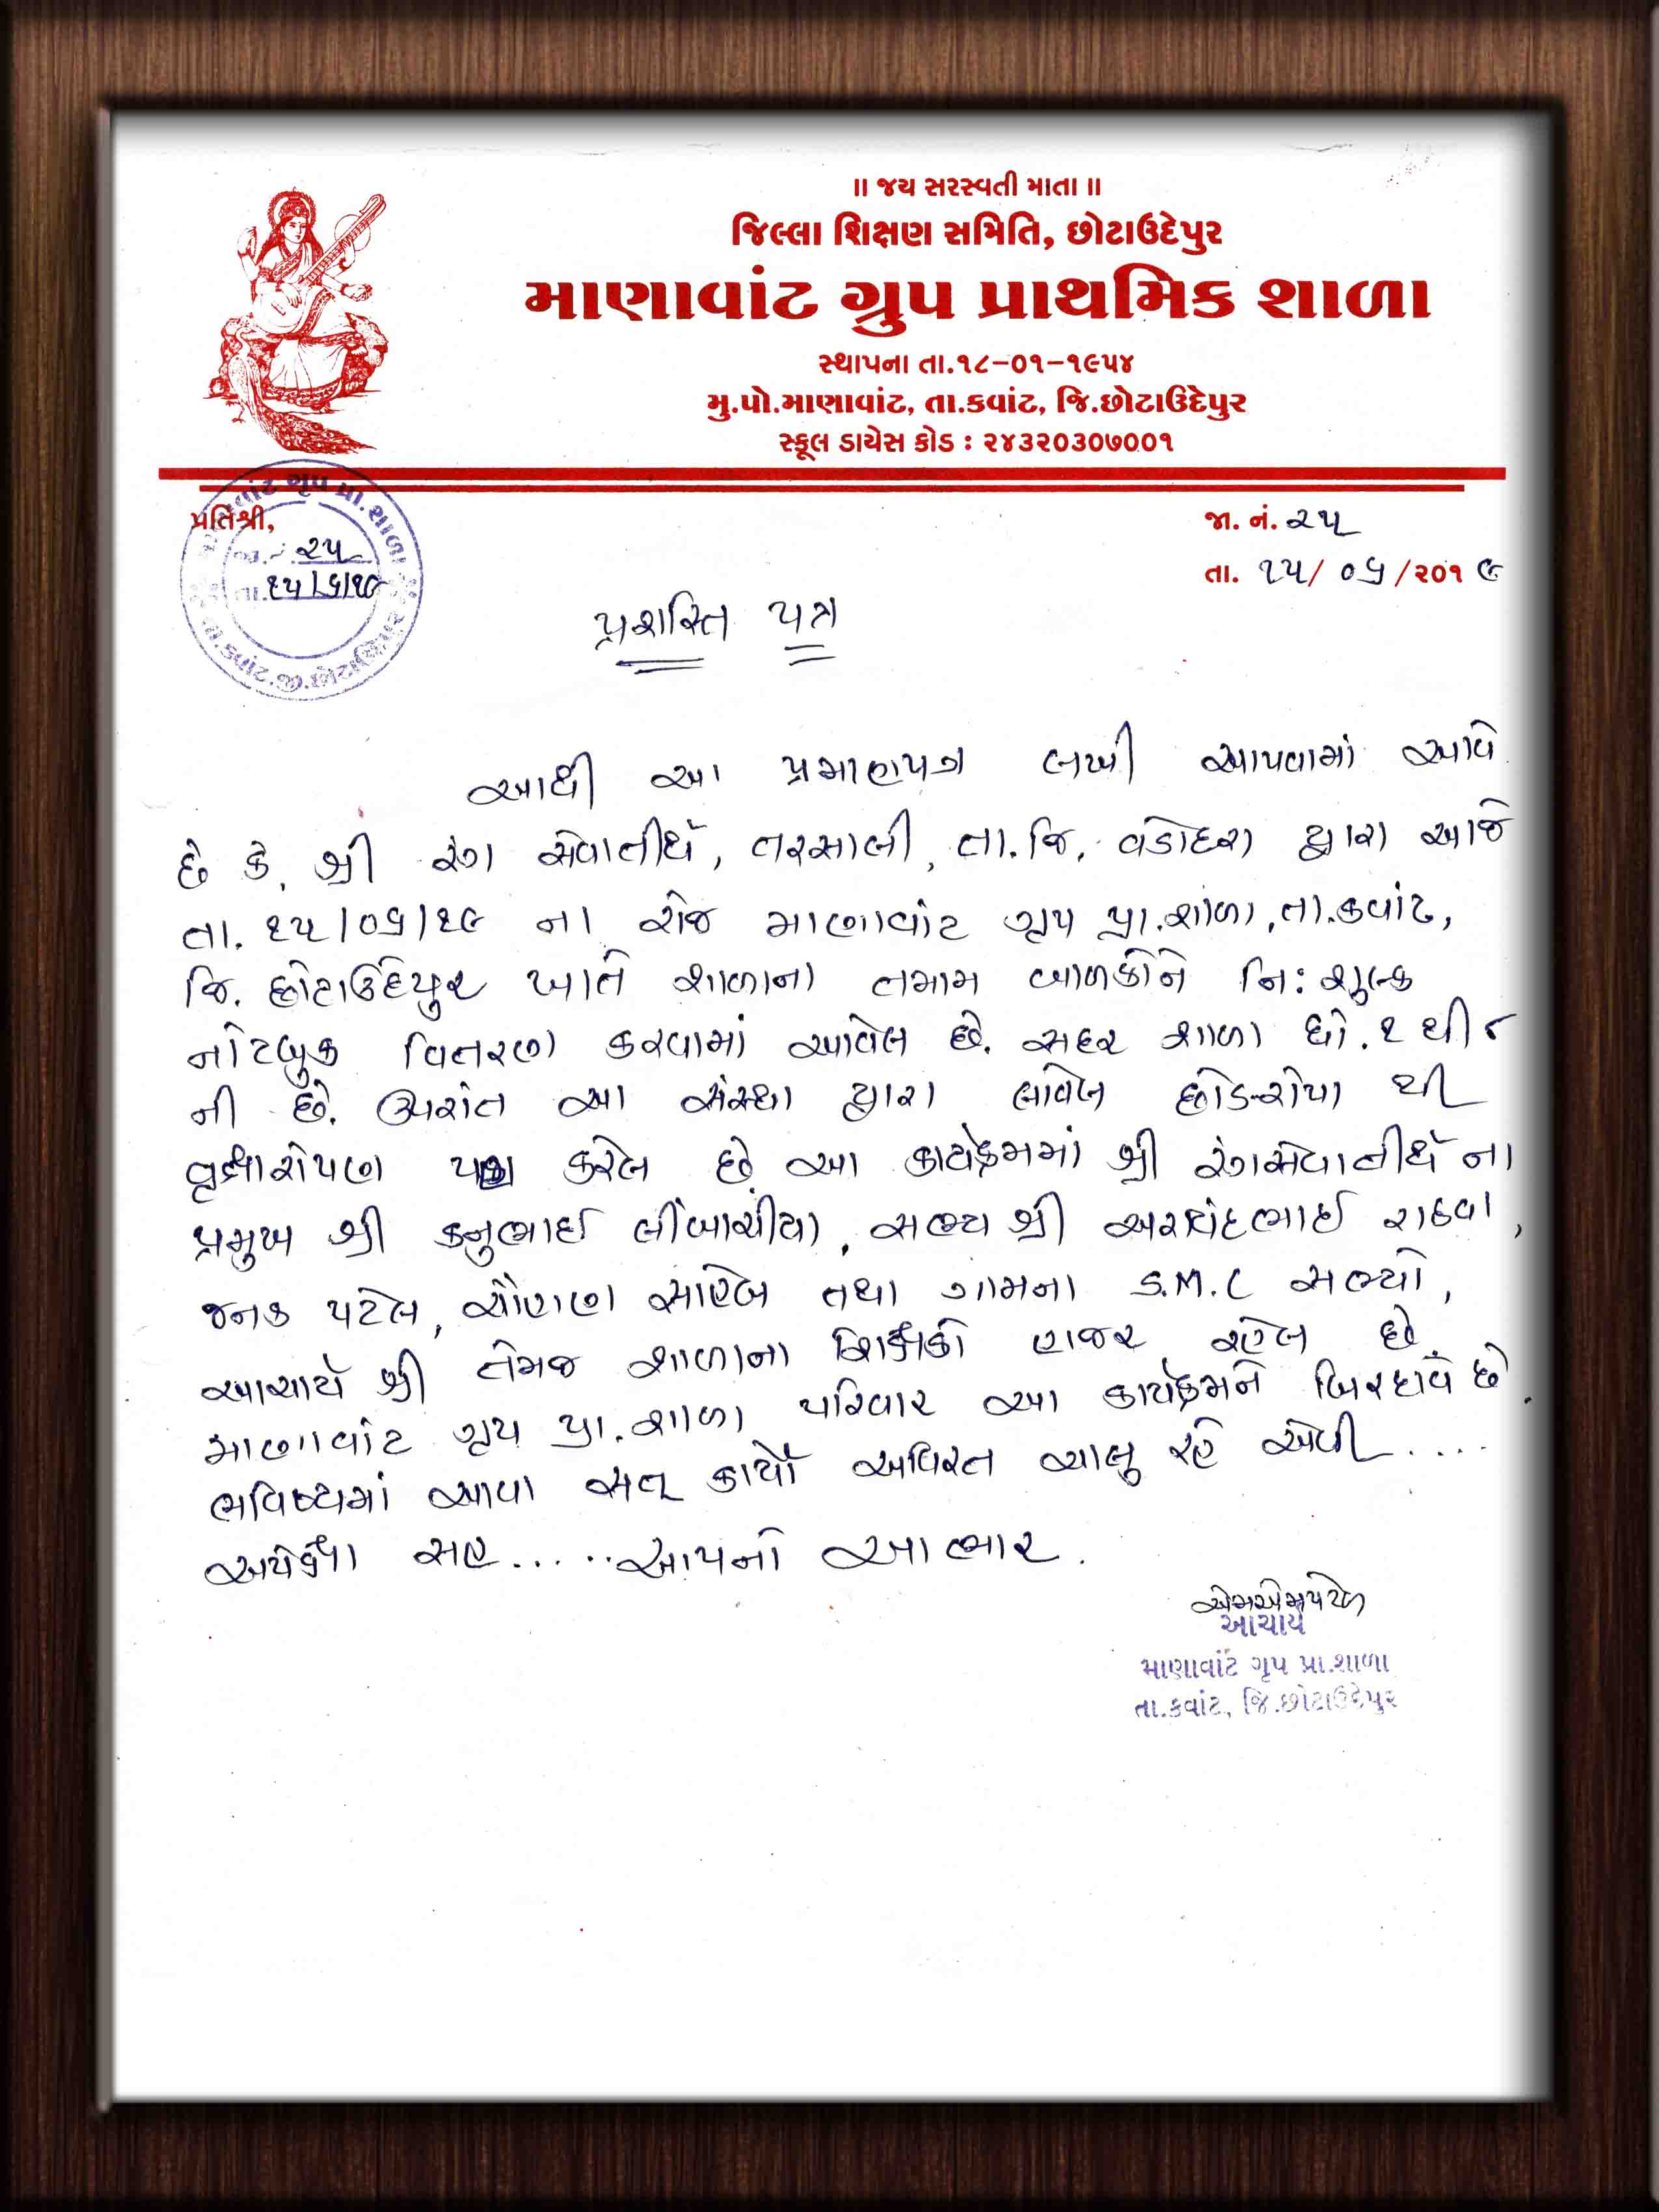 ॥ જય સરસ્વતી માતા ॥
જિલ્લા શિક્ષણ સમિતિ, છોટાઉદેપુર
માણાવાંટ ગ્રુપ પ્રાથમિક શાળા
સ્થાપના તા.૧૮-૦૧-૧૯૫૪
મુ.પો.માણાવાંટ, તા.કવાંટ, જિ.છોટાઉદેપુર
સ્કૂલ ડાયેસ કોડ : ૨૪૩૨૦૩૦૭૦૦૧
પ્રતિશ્રી,
જા. નં. ૨૫
જા.નં ૨૫
તા.૧૫/૬/૧૯
તા. ૧૫/ ૦૬ /૨૦૧૯
પ્રશસ્તિ પત્ર
આથી આ પ્રમાણપત્ર લખી આપવામાં આવે
છે કે, શ્રી રંગ સેવાતીર્થ, તરસાલી, તા.જિ. વડોદરા દ્વારા આજે
તા. ૧૫/૦૬/૧૯ ના રોજ માણાવાંટ ગૃપ પ્રા.શાળા, તા.કવાંટ,
જિ. છોટાઉદેપુર ખાતે શાળાના તમામ બાળકોને નિ:શુલ્ક
નોટબુક વિતરણ કરવામાં આવેલ છે. સદર શાળા ધો. ૧ થી ૮
ની છે. ઉપરાંત આ સંસ્થા દ્વારા લાવેલ છોડ-રોપા થી
વૃક્ષારોપણ પણ કરેલ છે. આ કાર્યક્રમમાં શ્રી રંગસેવાતીર્થ ના
પ્રમુખ શ્રી કનુભાઈ લીંબાચીયા, સભ્ય શ્રી અરવિંદભાઈ રાઠવા,
જનક પટેલ, ચૌહાણ સાહેબ તથા ગામના S.M.C સભ્યો,
આચાર્ય શ્રી તેમજ શાળાના શિક્ષકો હાજર રહેલ છે.
માણાવાંટ ગૃપ પ્રા.શાળા પરિવાર આ કાર્યક્રમને બિરદાવે છે.
ભવિષ્યમાં આવા સત્ કાર્યો અવિરત ચાલુ રહે એવી....
અપેક્ષા સહ.....આપનો આભાર.
આચાર્ય
માણાવાંટ ગૃપ પ્રા.શાળા
તા.કવાંટ, જિ.છોટાઉદેપુર